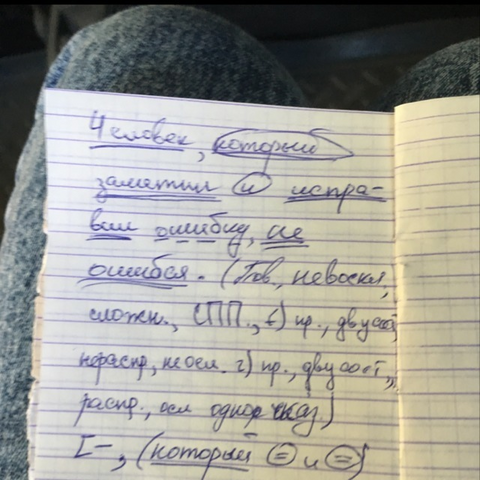 Человек, который
заметил и испра-
вил ошибку, не
ошибся. (Пов., невоскл.,
сложн., СПП., 1) пр., двусост,
нераспр, неосл. 2) пр., двусост.,
распр., осл однор сказ.)
[–, (который = и =)